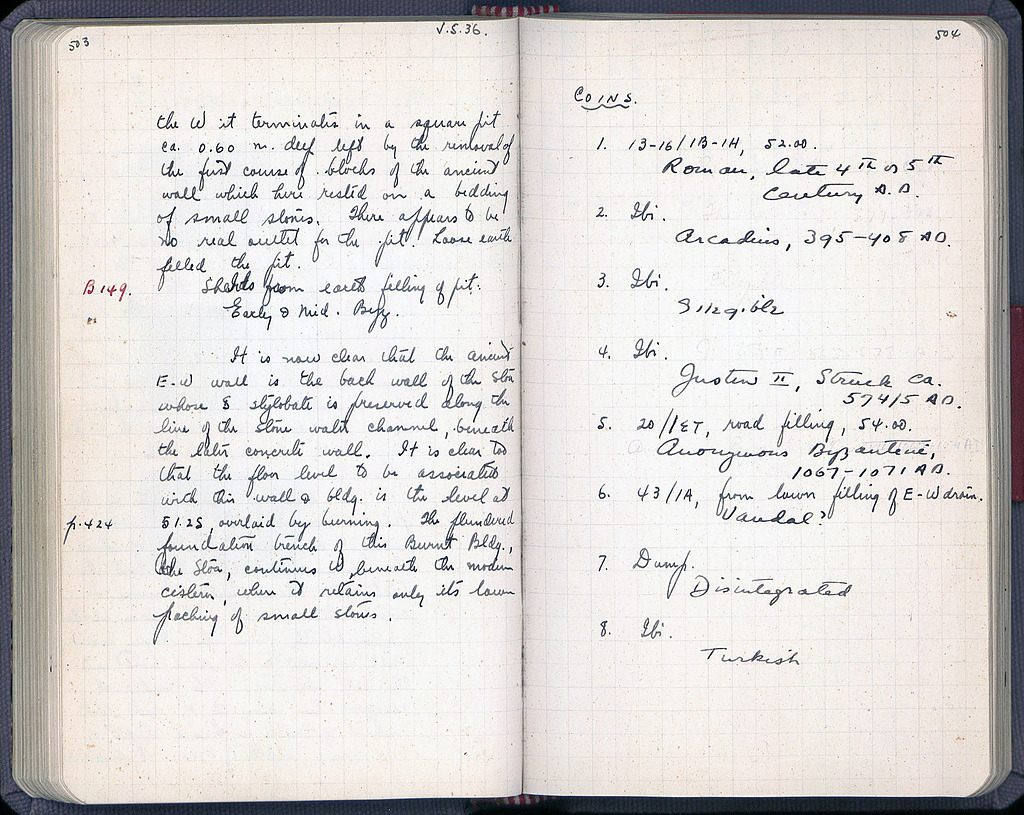 503
V.S.36.
the W it terminates in a square pit
ca. 0.60 m. deep left by the removal of
the first course of blocks of the ancient
wall which here rested on a bedding
of small stones. There appears to be
no real outlet for the pit. Loose earth
filled the pit.
B 149. Sherds from earth filling of pit:
Early & Mid. Byz.
It is now clear that the ancient
E-W wall is the back wall of the Stoa
whose S stylobate is preserved along the
line of the stone water channel, beneath
the later concrete wall. It is clear too
that the floor level to be associated
with this wall & bldg. is the level at
p. 424 51.25, overlaid by burning. The plundered
foundation trench of this Burnt Bldg.,
the Stoa, continues W, beneath the modern
cistern, where it retains only its lower
packing of small stones.
504
COINS.
1. 13-16/1B-1H, 52.00.
Roman, late 4th or 5th
Century A.D
2. Ibi.
Arcadius, 395-408 AD.
3. Ibi.
Illegible
4. Ibi.
Justin II, Struck ca.
574/5 AD.
5. 20/1ET, road filling, 54.00.
Anonymous Byzantine,
1067-1071 AD.
6. 43/1A, from lower filling of E-W drain.
Vandal?
7. Dump.
Disintegrated
8. Ibi.
Turkish